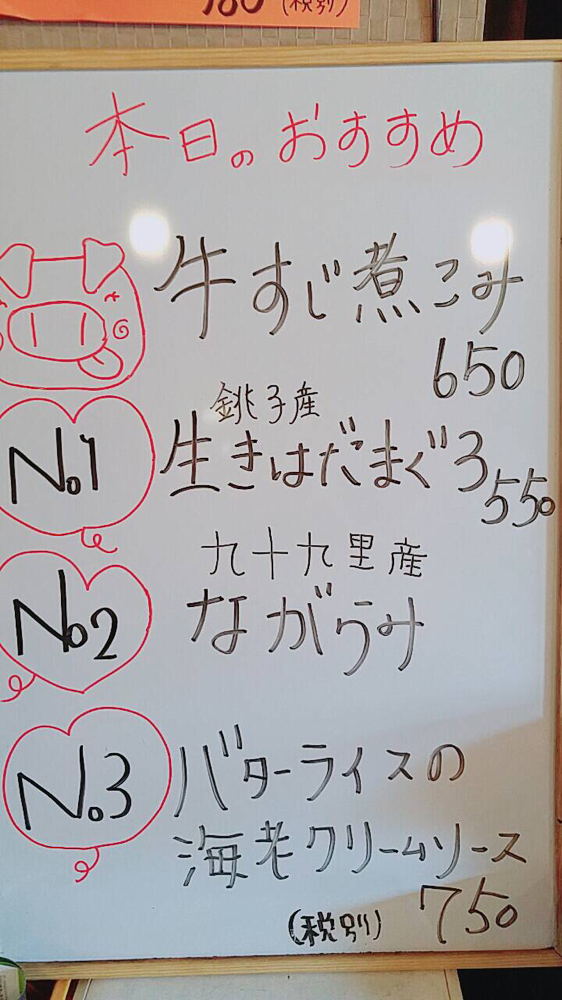 180 (税別)
本日のおすすめ
牛すじ煮こみ
650
No.1
銚子産
生きはだまぐろ
550
No.2
九十九里産
ながらみ
No.3
バターライスの
海老クリームソース
750
(税別)